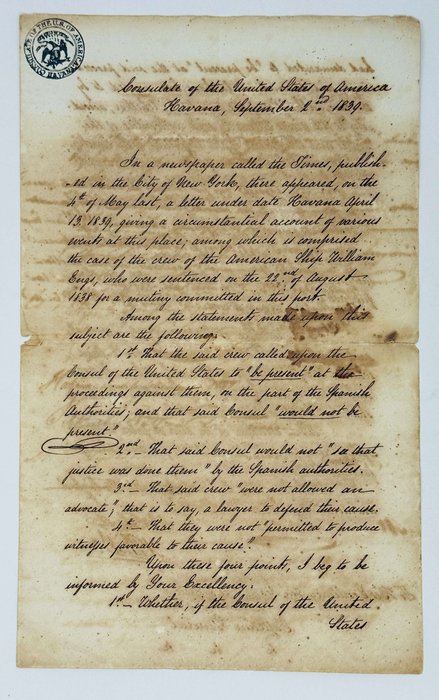 CONSULATE OF THE U.S. OF AMERICA HAVANA
Consulate of the United States of America
Havana, September 2nd 1839.
In a newspaper called the Times, publish-
-ed in the City of New York, there appeared, on the
4th of May last, a letter under date Havana April
13. 1839, giving a circumstantial account of various
events at this place; among which is comprised
the case of the crew of the American Ship William
Engs, who were sentenced on the 22nd of August
1838 for a mutiny committed in this port.
Among the statements made upon this
subject are the following:
1st That the said crew called upon the
Consul of the United States to "be present" at the
proceedings against them, on the part of the Spanish
Authorities; and that said Consul "would not be
present."
2nd That said Consul would not "see that
justice was done them" by the Spanish authorities.
3rd That said crew "were not allowed an
advocate"; that is to say, a lawyer to defend their cause.
4th That they were not "permitted to produce
witnesses favorable to their cause".
Upon these four points, I beg to be
informed by Your Excellency.
1st Whether, if the Consul of the United
States